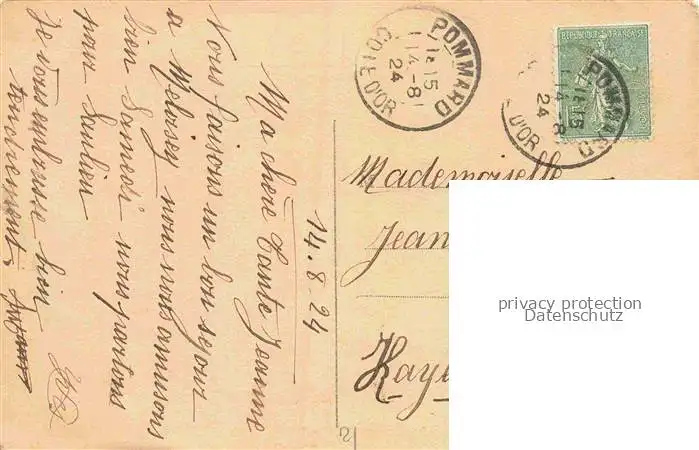 14.8.24
Ma chère Tante Jeanne
Vous faisons un bon séjour
à Meloisey nous nous amusons
bien Samedi nous partons
pour Saulieu
Je vous embrasse bien
tendrement
POMMARD
11 15
14-8
24
COTE D'OR
REPUBLIQUE FRANÇAISE
POMMARD
11 15
14-8
24
D'OR
Mademoiselle
Jean
Kay
privacy protection
Datenschutz